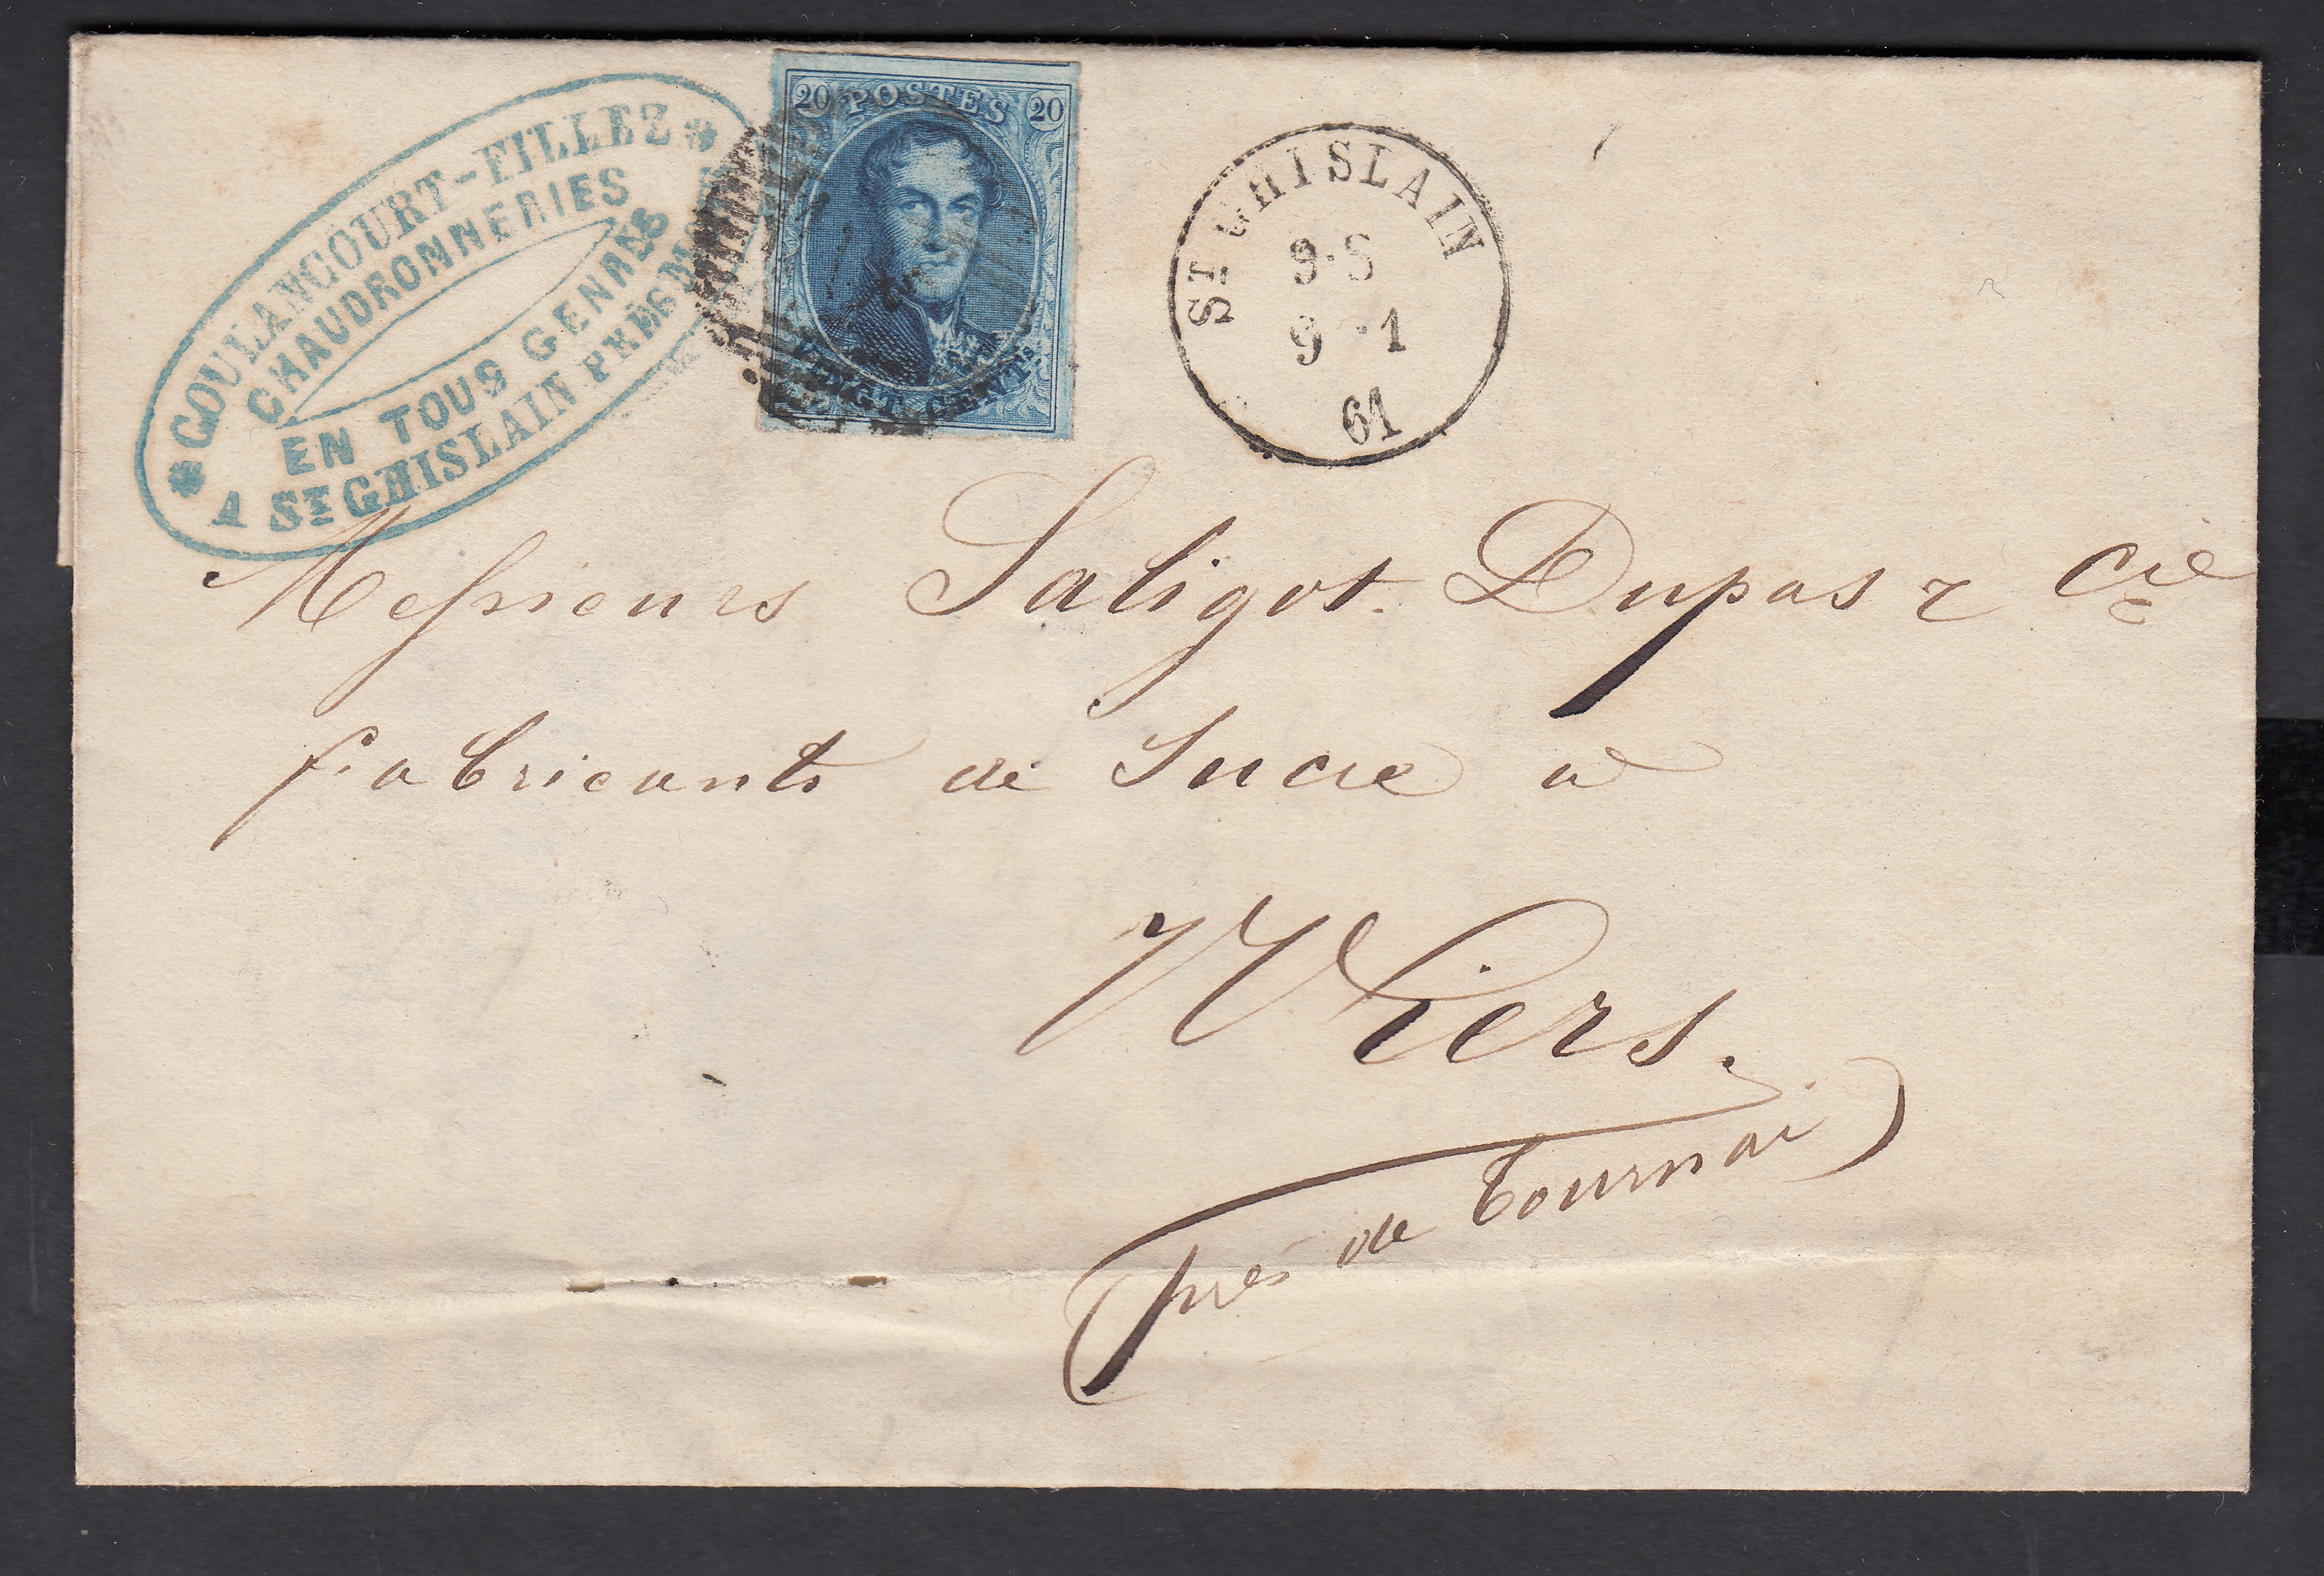 * GOULANCOURT-FILLEZ *
CHAUDRONNERIES
EN TOUS GENRES
A ST GHISLAIN PRÈS MONS
20 POSTES 20
VINGT CENT.ˢ
ST GHISLAIN
9·S
9 1
61
Messieurs Saligot Dupas & Cie
fabricants de Sucre a
Wiers.
(près de Tournai)